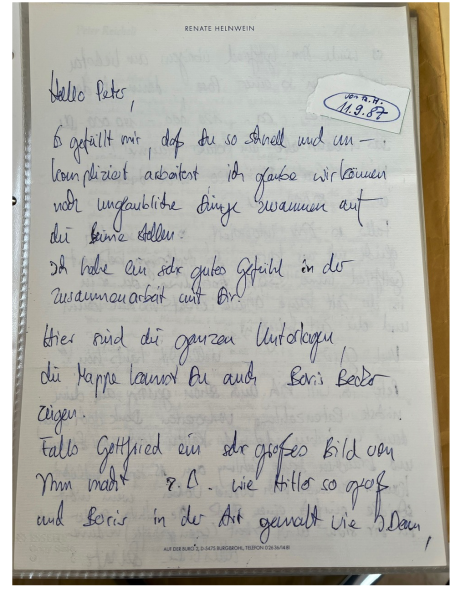 RENATE HELNWEIN
von R.H.
11.9.87
Hallo Peter,
Es gefällt mir, daß Du so schnell und un-
kompliziert arbeitest ich glaube wir können
noch unglaubliche Dinge zusammen auf
die Beine stellen.
Ich habe ein sehr gutes Gefühl in der
Zusammenarbeit mit Dir.
Hier sind die ganzen Unterlagen,
die Mappe kannst Du auch Boris Becker
zeigen.
Falls Gottfried ein sehr großes Bild von
ihm macht z.B. wie Hitler so groß
und Boris in der Art gemalt wie J Dean,
AUF DER BURG 2, D-5475 BURGBROHL, TELEFON